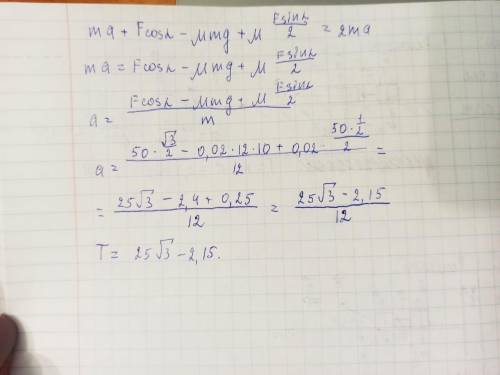 ma + Fcosα − μmg + μ Fsinα/2 = 2ma
ma = Fcosα − μmg + μ Fsinα/2
a = (Fcosα − μmg + μ Fsinα/2)/m
a = (50 · √3/2 − 0,02 · 12 · 10 + 0,02 · (50 · 1/2)/2)/12 =
= (25√3 − 2,4 + 0,25)/12 = (25√3 − 2,15)/12
T = 25√3 − 2,15.